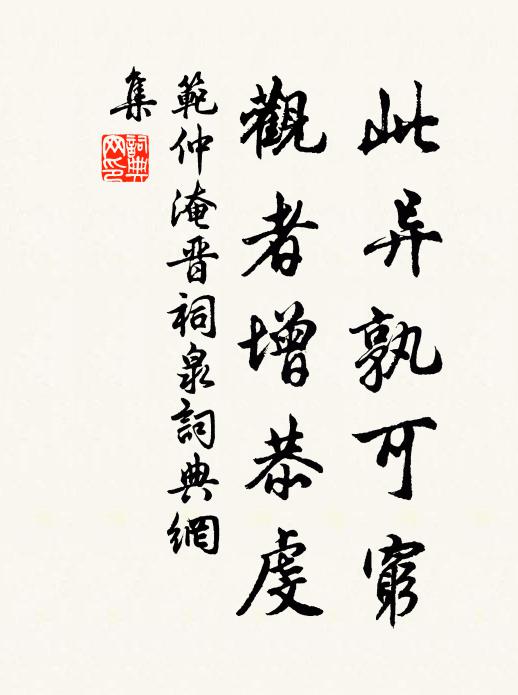 此异孰可穷
觀者增恭虔
範仲淹晋祠泉詞典網
集
詞典
网印